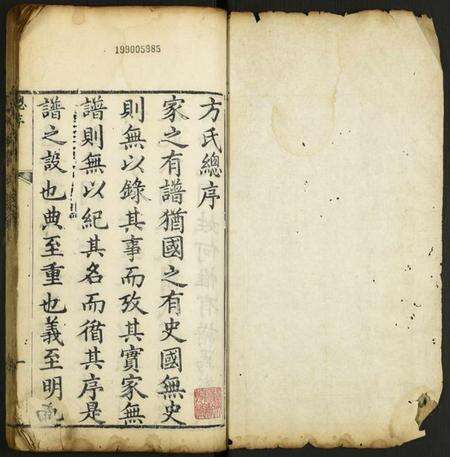 199005985
方氏總序
家之有譜猶國之有史國無史
則無以錄其事而攷其實家無
譜則無以紀其名而循其序是
譜之設也典至重也義至明